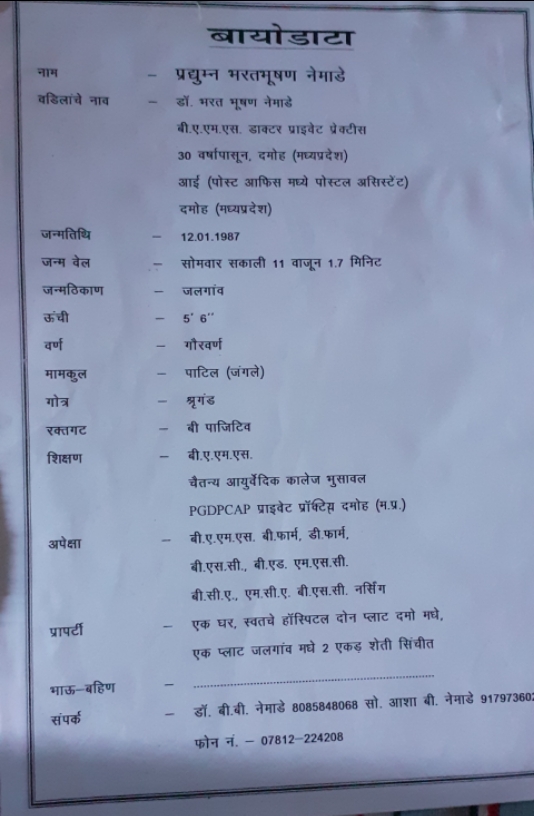 बायोडाटा
नाम – प्रद्युम्न भरतभूषण नेमाडे
वडिलांचे नाव – डॉ. भरत भूषण नेमाडे
बी.ए.एम.एस. डाक्टर प्राइवेट प्रेक्टीस
30 वर्षापासून, दमोह (मध्यप्रदेश)
आई (पोस्ट आफिस मध्ये पोस्टल असिस्टेंट)
दमोह (मध्यप्रदेश)
जन्मतिथि – 12.01.1987
जन्म वेल – सोमवार सकाली 11 वाजून 1.7 मिनिट
जन्मठिकाण – जलगांव
ऊंची – 5' 6''
वर्ण – गौरवर्ण
मामकुल – पाटिल (जंगले)
गोत्र – श्रृगंड
रक्तगट – बी पाजिटिव
शिक्षण – बी.ए.एम.एस.
चैतन्य आयुर्वेदिक कालेज भुसावल
PGDPCAP प्राइवेट प्रॉक्टिस दमोह (म.प्र.)
अपेक्षा – बी.ए.एम.एस. बी.फार्म, डी.फार्म,
बी.एस.सी., बी.एड. एम.एस.सी.
बी.सी.ए., एम.सी.ए. बी.एस.सी. नर्सिग
प्रापर्टी – एक घर, स्वतचे हॉस्पिटल दोन प्लाट दमो मधे,
एक प्लाट जलगांव मधे 2 एकड़ शेती सिंचीत
भाऊ–बहिण – ................................................
संपर्क – डॉ. बी.बी. नेमाडे 8085848068 सो. आशा बी. नेमाडे 917973602
फोन नं. – 07812–224208